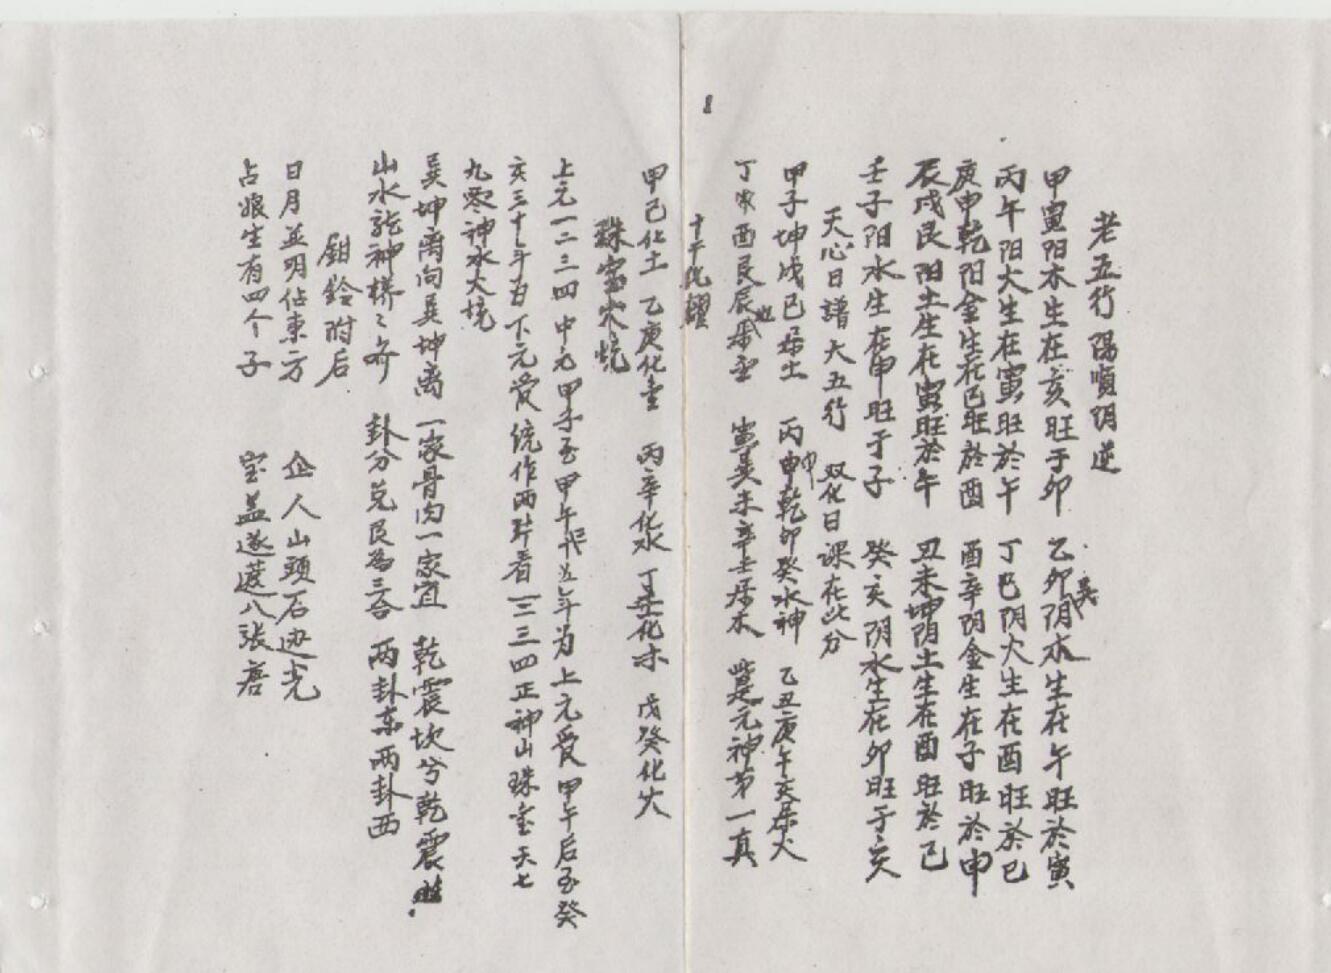 老五行 陽順阴逆
甲寅阳木生在亥旺于卯 乙卯巽阴木生在午旺於寅
丙午阳火生在寅旺於午 丁巳阴火生在酉旺於巳
庚申乾阳金生在巳旺於酉 酉辛阴金生在子旺於申
辰戌艮阳土生在寅旺於午 丑未坤阴土生在酉旺於己
壬子阳水生在申旺于子 癸亥阴水生在卯旺于亥
天心日譜大五行 双化日课在此分
甲子坤戊己居土 丙申乾卯癸水神 乙丑庚午亥居火
丁 酉艮辰居金也 寅巽未辛壬居木 是元神第一真
十干化耀
甲己化土 乙庚化金 丙辛化水 丁壬化木 戊癸化火
珠宝火坑
上元一二三四 中元甲子至甲午 年为上元受 甲午后至癸
亥三十年为下元受 统作两片看 一二三四正神山珠宝天七
九零神水大坑
巽坤离向巽坤离 一家骨肉一家宜 乾震坎兮乾震
山水龍神样々奇 卦分兑艮為三合 两卦东两卦西
鉗鈴附后
日月並明佔東方 企人山頭石边光
占娘生有四个子 宝盖遂 八张唐
8